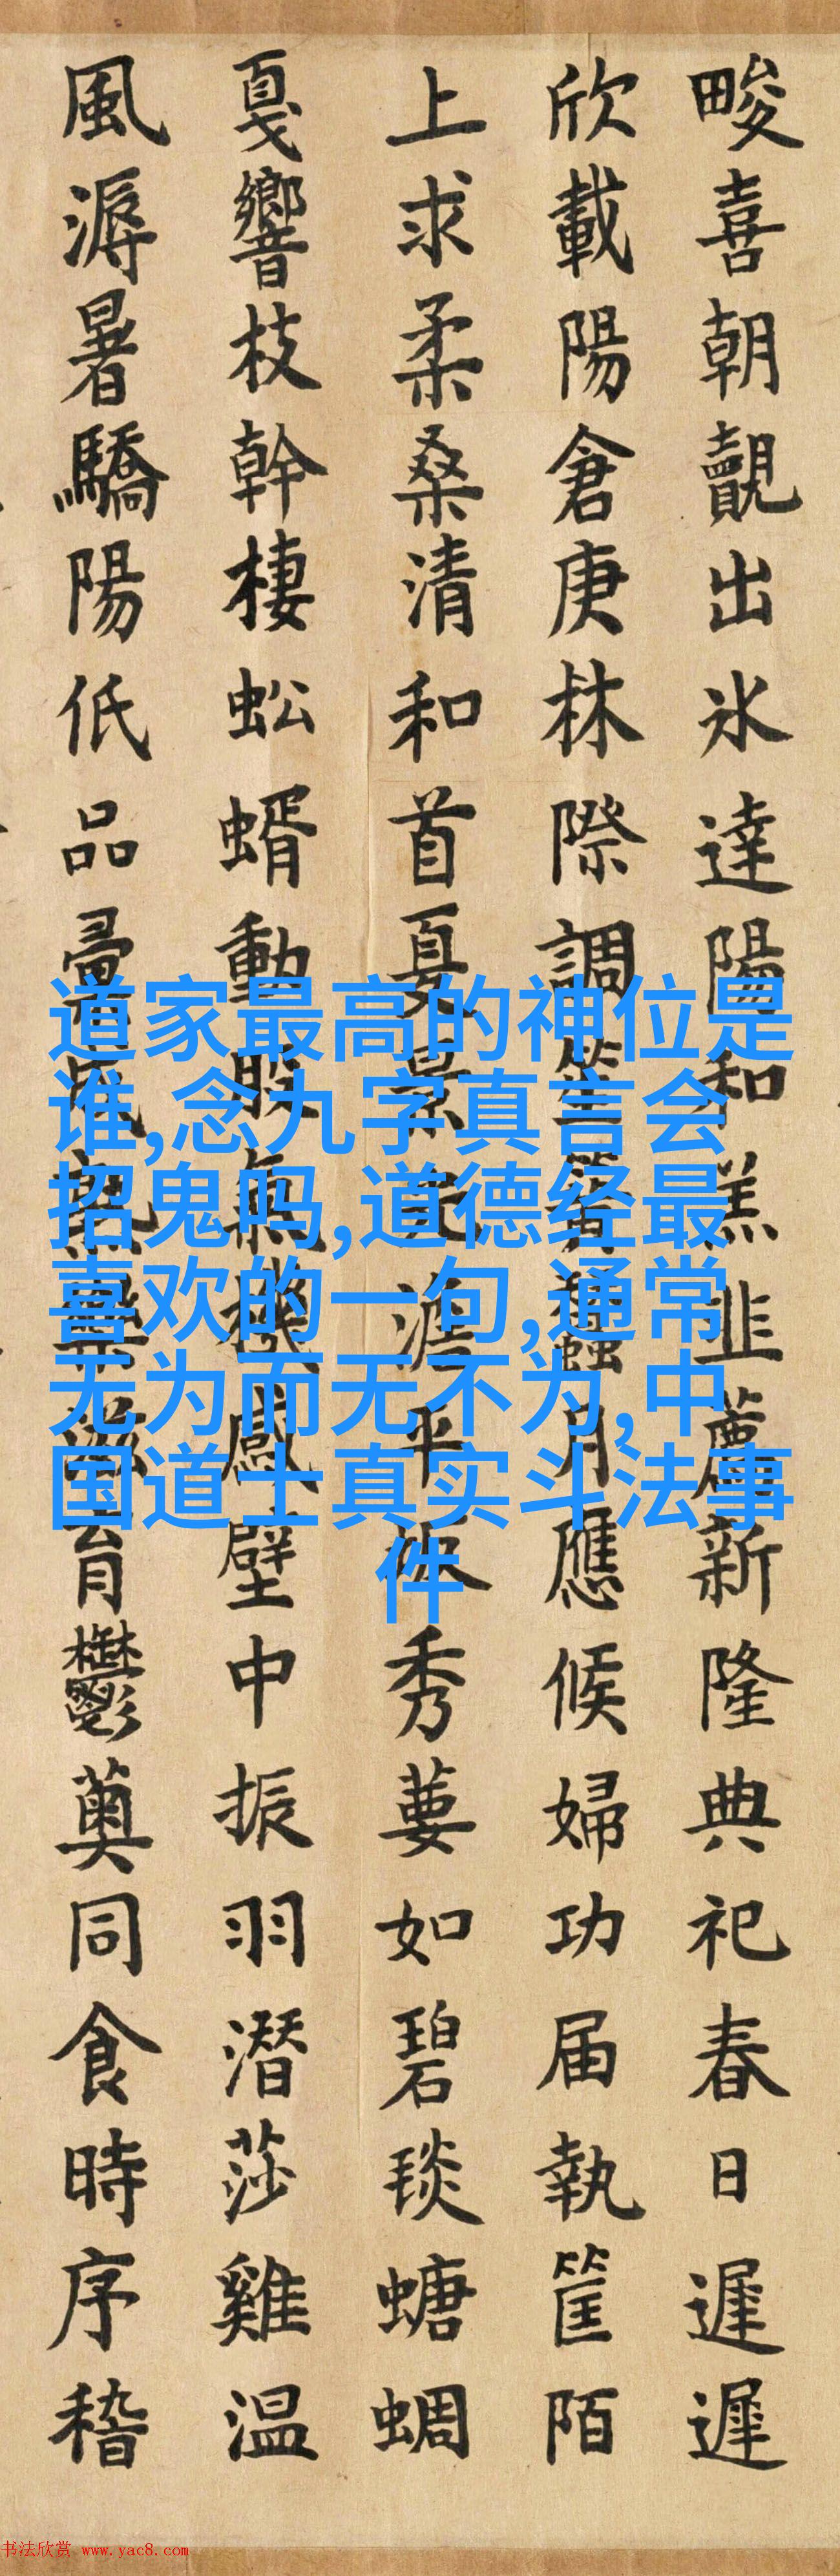 畯喜朝覿出氷達陽和羔韭薦新隆典祀春日遲遲
欣載陽倉庚林際調笙簧蠶月應候婦功届執筐陌
上求柔桑清和首夏景澹平秀葽如碧琰螗蜩
戛響枝幹棲蚣蝑動股氣機感壁中振羽潛莎雞温
風溽暑驕陽低品彙滋育鬱薁同食時序稽
道家最高的神位是
谁,念九字真言会
招鬼吗,道德经最
喜欢的一句,通常
无为而无不为,中
国道士真实斗法事
件
书法欣赏 www.yac8.com